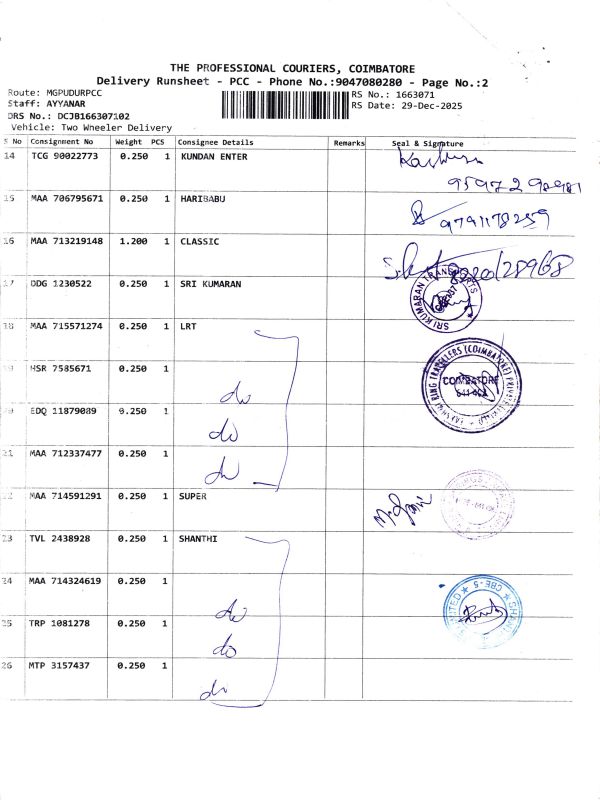 THE PROFESSIONAL COURIERS, COIMBATORE
Delivery Runsheet - PCC - Phone No.:9047080280 - Page No.:2
Route: MGPUDURPCC
Staff: AYYANAR
DRS No.: DCJB166307102
Vehicle: Two Wheeler Delivery
RS No.: 1663071
RS Date: 29-Dec-2025
S No Consignment No Weight PCS Consignee Details Remarks Seal & Signature
14 TCG 90022773 0.250 1 KUNDAN ENTER
15 MAA 706795671 0.250 1 HARIBABU
9791178259
16 MAA 713219148 1.200 1 CLASSIC
17 DDG 1230522 0.250 1 SRI KUMARAN
SRI KUMARAN TRANSPORTS
18 MAA 715571274 0.250 1 LRT
19 HSR 7585671 0.250 1 do
COIMBATORE
20 EDQ 11879089 0.250 1 do
21 MAA 712337477 0.250 1 do
22 MAA 714591291 0.250 1 SUPER
23 TVL 2438928 0.250 1 SHANTHI
24 MAA 714324619 0.250 1 do
CBE-5
25 TRP 1081278 0.250 1 do
26 MTP 3157437 0.250 1 do